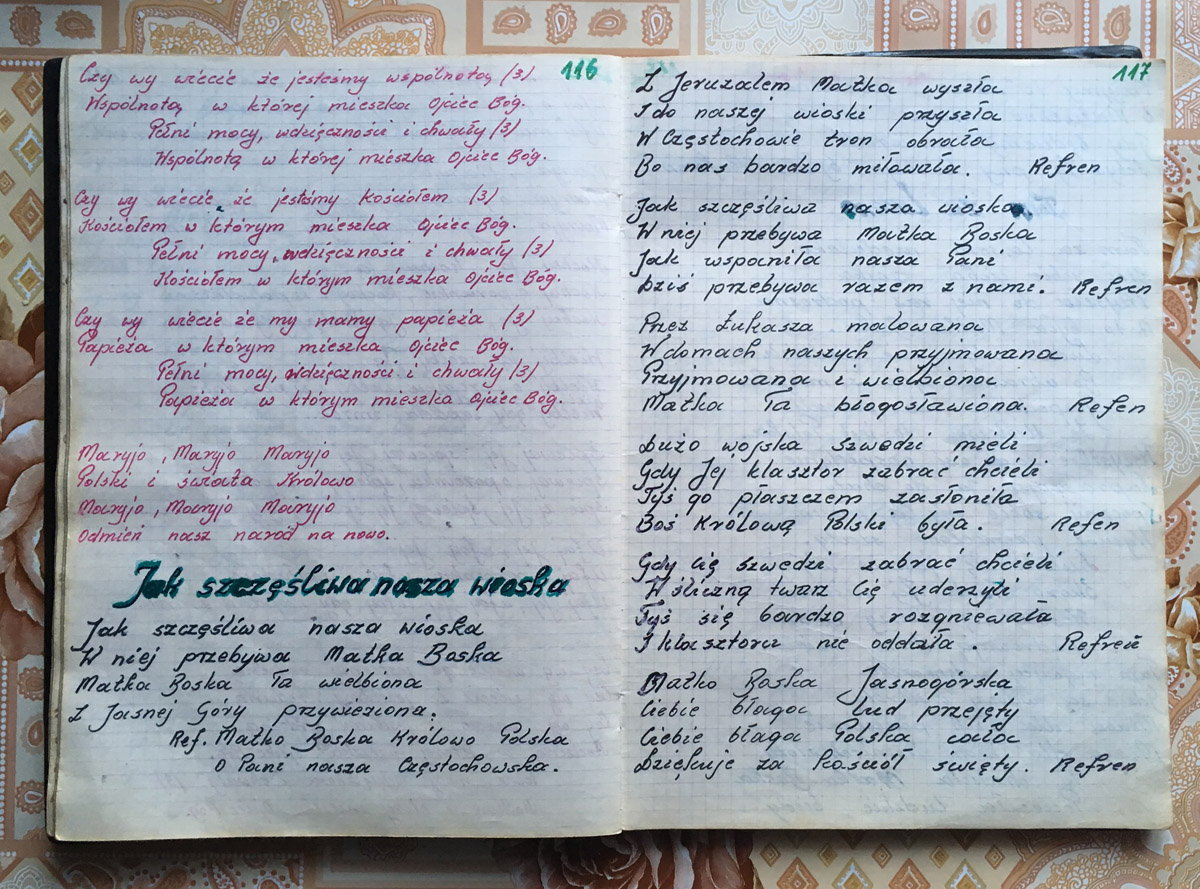 116
Czy wy wiecie że jesteśmy wspólnotą (3)
Wspólnotą w której mieszka Ojciec Bóg.
Pełni mocy, wdzięczności i chwały (3)
Wspólnotą w której mieszka Ojciec Bóg.
Czy wy wiecie że jesteśmy Kościołem (3)
Kościołem w którym mieszka Ojciec Bóg.
Pełni mocy, wdzięczności i chwały (3)
Kościołem w którym mieszka Ojciec Bóg.
Czy wy wiecie że my mamy papieża (3)
Papieża w którym mieszka Ojciec Bóg.
Pełni mocy, wdzięczności i chwały (3)
Papieża w którym mieszka Ojciec Bóg.
Maryjo, Maryjo Maryjo
Polski i świata Królowo
Maryjo, Maryjo Maryjo
Odmień nasz naród na nowo.
Jak szczęśliwa nasza wioska
Jak szczęśliwa nasza wioska
W niej przebywa Matka Boska
Matka Boska Ta wielbiona
Z Jasnej Góry przywieziona.
Ref. Matko Boska Królowo Polska
O Pani nasza Częstochowska.
117
Z Jeruzalem Matka wyszła
I do naszej wioski przyszła
W Częstochowie tron obrała
Bo nas bardzo miłowała. Refren
Jak szczęśliwa nasza wioska
W niej przebywa Matka Boska
Jak wspaniła nasza Pani
Dziś przebywa razem z nami. Refren
Przez Łukasza malowana
W domach naszych przyjmowana
Przyjmowana i wielbiona
Matka Ta błogosławiona. Refen
Dużo wojska szwedzi mieli
Gdy Jej klasztor zabrać chcieli
Tyś go płaszczem zasłoniła
Boś Królową Polski była. Refen
Gdy Cię szwedzi zabrać chcieli
W śliczną twarz Cię uderzyli
Tyś się bardzo rozgniewała
I klasztoru nie oddała. Refren
Matko Boska Jasnogórska
Ciebie błaga lud przejęty
Ciebie błaga Polska cała
Dziękuje za kościół święty. Refren